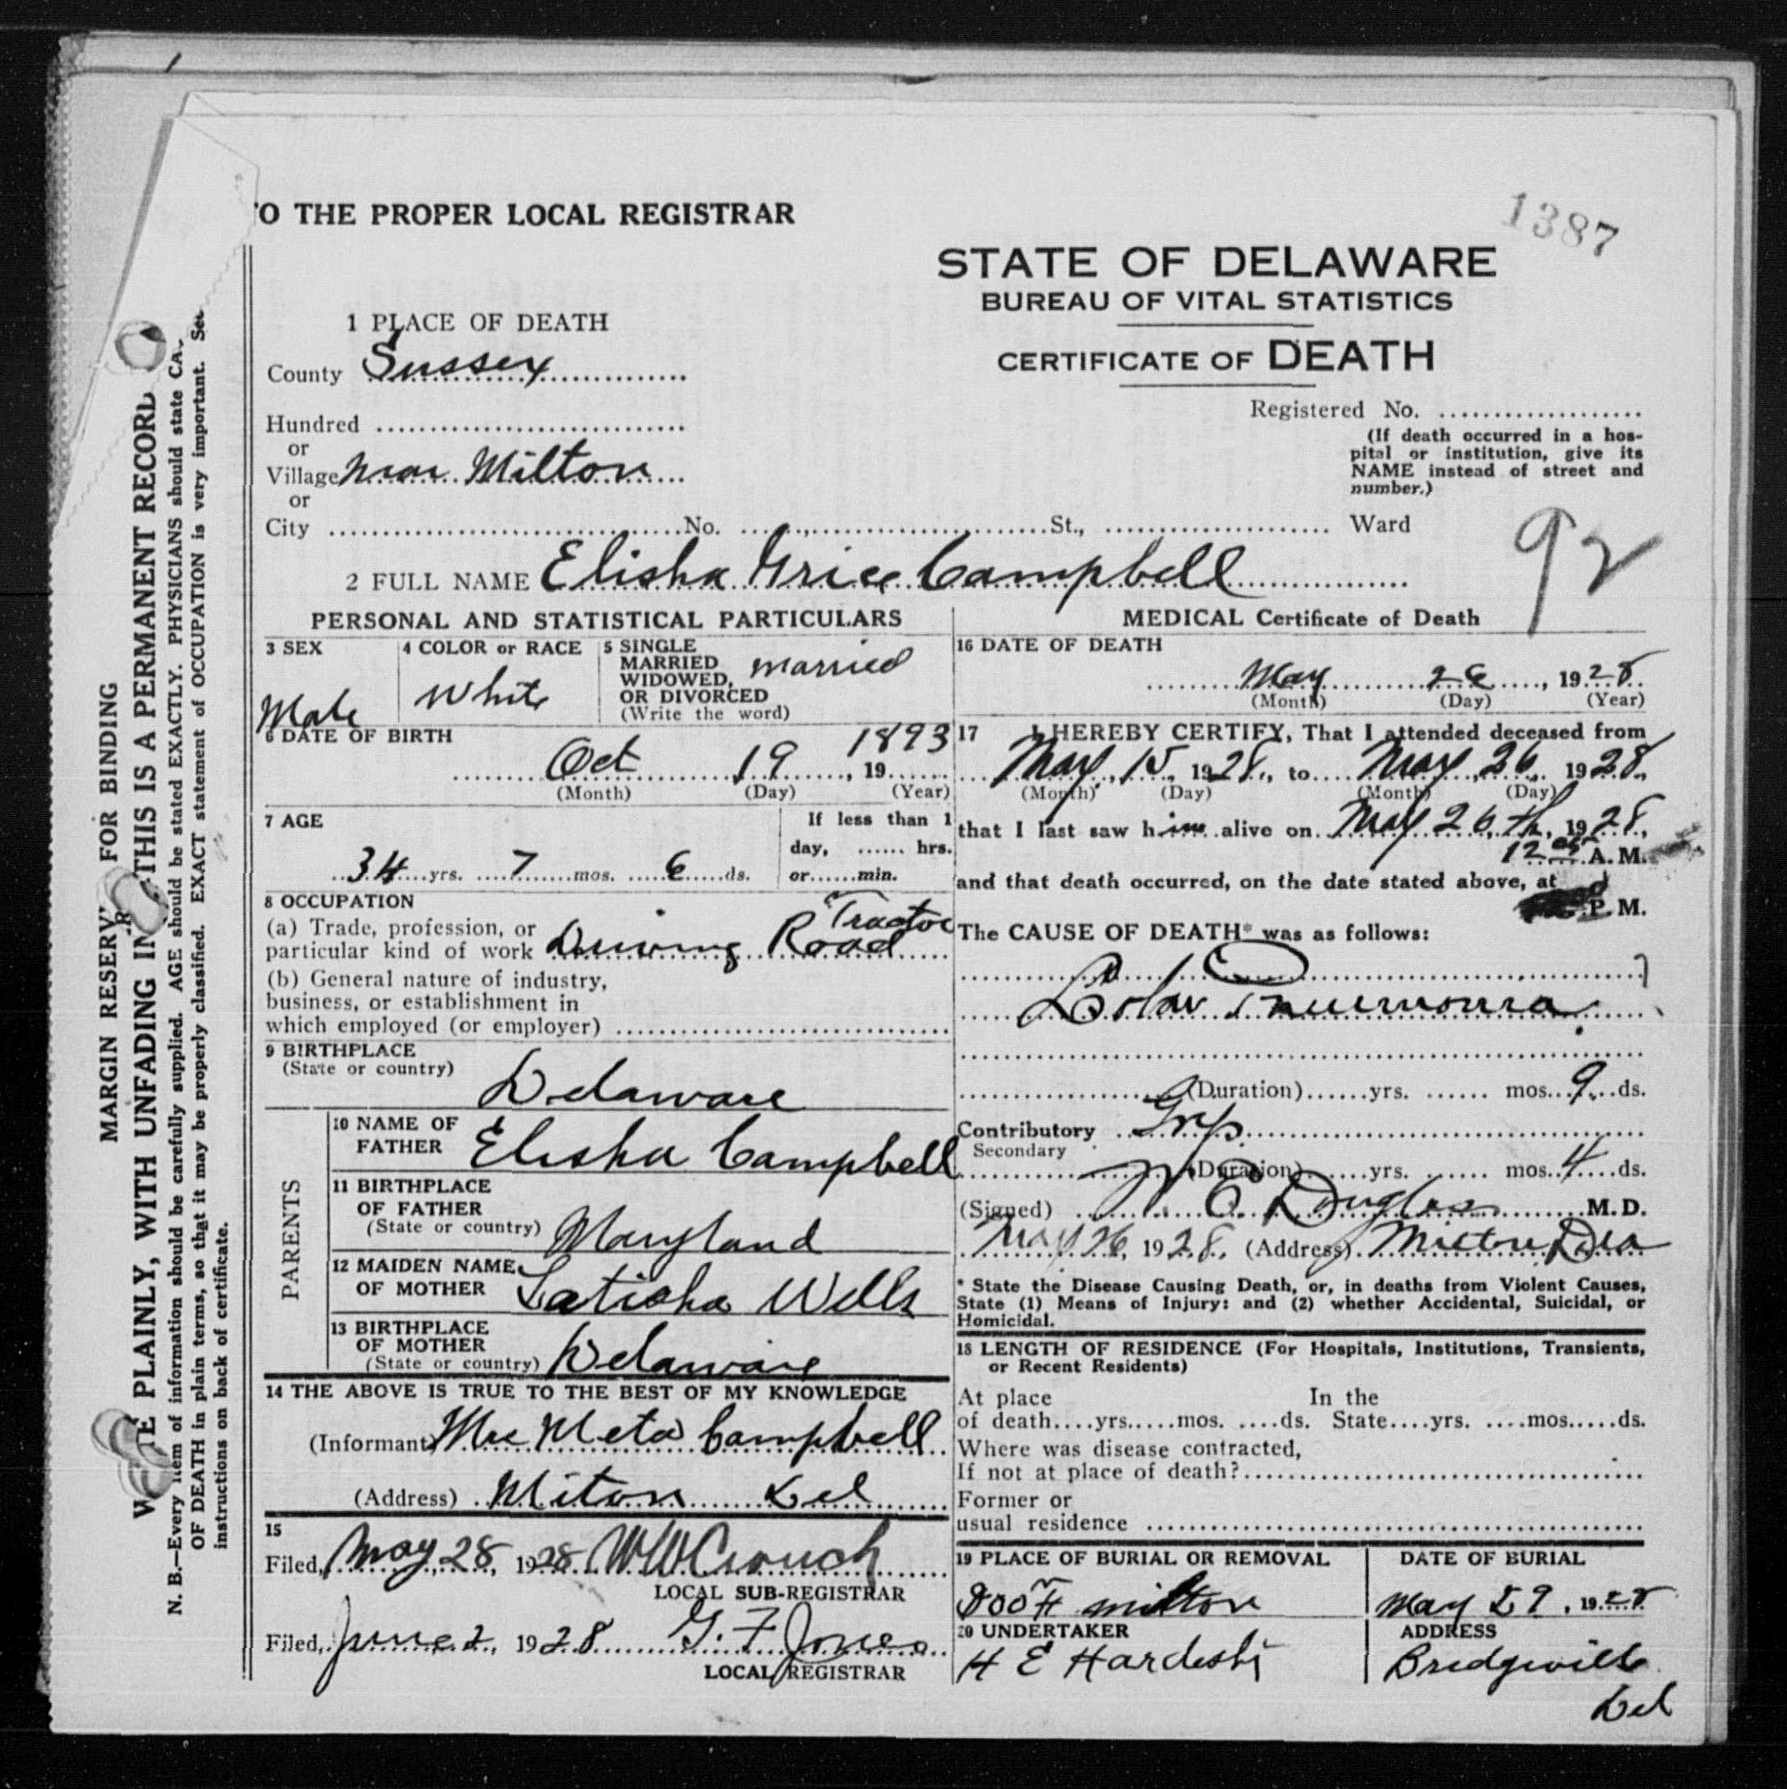 'O THE PROPER LOCAL REGISTRAR
1387
STATE OF DELAWARE
BUREAU OF VITAL STATISTICS
CERTIFICATE OF DEATH
1 PLACE OF DEATH
County Sussex
Registered No.
Hundred
(If death occurred in a hos-
pital or institution, give its
NAME instead of street and
number.)
or
Village near Milton
or
City No. St., Ward
92
2 FULL NAME Elisha Grice Campbell
PERSONAL AND STATISTICAL PARTICULARS
3 SEX
Male
4 COLOR or RACE
White
5 SINGLE
MARRIED
WIDOWED,
OR DIVORCED
(Write the word)
married
6 DATE OF BIRTH
Oct 19, 19 1893
(Month) (Day) (Year)
7 AGE
34 yrs. 7 mos. 6 ds.
If less than 1
day, hrs.
or min.
8 OCCUPATION
(a) Trade, profession, or
particular kind of work Driving Road Tractor
(b) General nature of industry,
business, or establishment in
which employed (or employer)
9 BIRTHPLACE
(State or country)
Delaware
PARENTS
10 NAME OF
FATHER Elisha Campbell
11 BIRTHPLACE
OF FATHER
(State or country) Maryland
12 MAIDEN NAME
OF MOTHER Latisha Wells
13 BIRTHPLACE
OF MOTHER
(State or country) Delaware
14 THE ABOVE IS TRUE TO THE BEST OF MY KNOWLEDGE
(Informant) Mrs Meta Campbell
(Address) Miton Del
15
Filed, May 28, 1928 WW Crouch
LOCAL SUB-REGISTRAR
Filed, June 2, 1928 G. F. Jones
LOCAL REGISTRAR
MEDICAL Certificate of Death
16 DATE OF DEATH
May 26, 1928
(Month) (Day) (Year)
17 I HEREBY CERTIFY, That I attended deceased from
May 15, 1928, to May 26, 1928,
(Month) (Day) (Month) (Day)
that I last saw him alive on May 26th, 1928,
12 A. M.
and that death occurred, on the date stated above, at
P. M.
The CAUSE OF DEATH* was as follows:
Lobar Pneumonia
(Duration) yrs. mos. 9 ds.
Contributory Grip
Secondary
(Duration) yrs. mos. 4 ds.
(Signed) Douglas M. D.
May 26, 1928, (Address) Milton Del
* State the Disease Causing Death, or, in deaths from Violent Causes,
State (1) Means of Injury: and (2) whether Accidental, Suicidal, or
Homicidal.
18 LENGTH OF RESIDENCE (For Hospitals, Institutions, Transients,
or Recent Residents)
At place In the
of death yrs. mos. ds. State yrs. mos. ds.
Where was disease contracted,
If not at place of death?
Former or
usual residence
19 PLACE OF BURIAL OR REMOVAL
milton
DATE OF BURIAL
May 29, 1928
20 UNDERTAKER
H E Hardesty
ADDRESS
Bridgville
Del
MARGIN RESERV FOR BINDING
W E PLAINLY, WITH UNFADING IN THIS IS A PERMANENT RECORD
N. B.—Every item of information should be carefully supplied. AGE should be stated EXACTLY. PHYSICIANS should state CA
OF DEATH in plain terms, so that it may be properly classified. EXACT statement of OCCUPATION is very important. See
instructions on back of certificate.